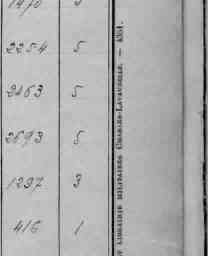 2254 5
2463 5
2693 5
1297 3
416 1
LIBRAIRIE MILITAIRES CHARLES-LAVAUZELLE. — 4351.